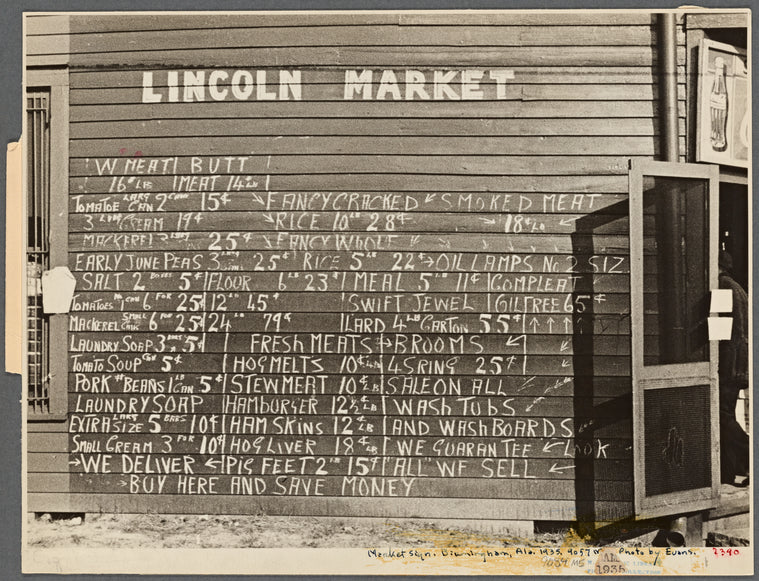 LINCOLN MARKET
W MEAT BUTT
16¢ LB MEAT 14¢ LB
TOMATOE LARG CAN 2 CAN 15¢ FANCY CRACKED SMOKED MEAT
3 LARG CREAM 19¢ RICE 10 LB 28¢ 18¢ LB
MACKEREL 3 25¢ FANCY WHOLE
EARLY JUNE PEAS 3 25¢ RICE 5 LB 22¢ OIL LAMPS No 2 SIZ
SALT 2 BOXES 5¢ FLOUR 6 LB 23¢ MEAL 5 LB 11¢ COMPLEAT
TOMATOES No 1 CAN 6 FOR 25¢ 12 LB 45¢ SWIFT JEWEL OIL FREE 65¢
MACKEREL SMALL CANS 6 FOR 25¢ 24 LB 79¢ LARD 4 LB CARTON 55¢
LAUNDRY SOAP 3 BARS 5¢ FRESH MEATS BROOMS
TOMATO SOUP CAN 5¢ HOG MELTS 10¢ LB 4 SRING 25¢
PORK & BEANS 1 LB CAN 5¢ STEW MERT 10¢ LB SALE ON ALL
LAUNDRY SOAP HAMBURGER 12½¢ LB WASH TUBS
EXTRA SIZE LARG 5 BARS 10¢ HAM SKINS 12½ LB AND WASH BOARDS
SMALL CREAM 3 FOR 10¢ HOG LIVER 18¢ LB WE GUARANTEE LOOK
WE DELIVER PIG FEET 2 LB 15¢ ALL WE SELL
BUY HERE AND SAVE MONEY
Market sign. Birmingham, Ala. 1935. 9057 M Photo by Evans. 2390
9039 MS
1935